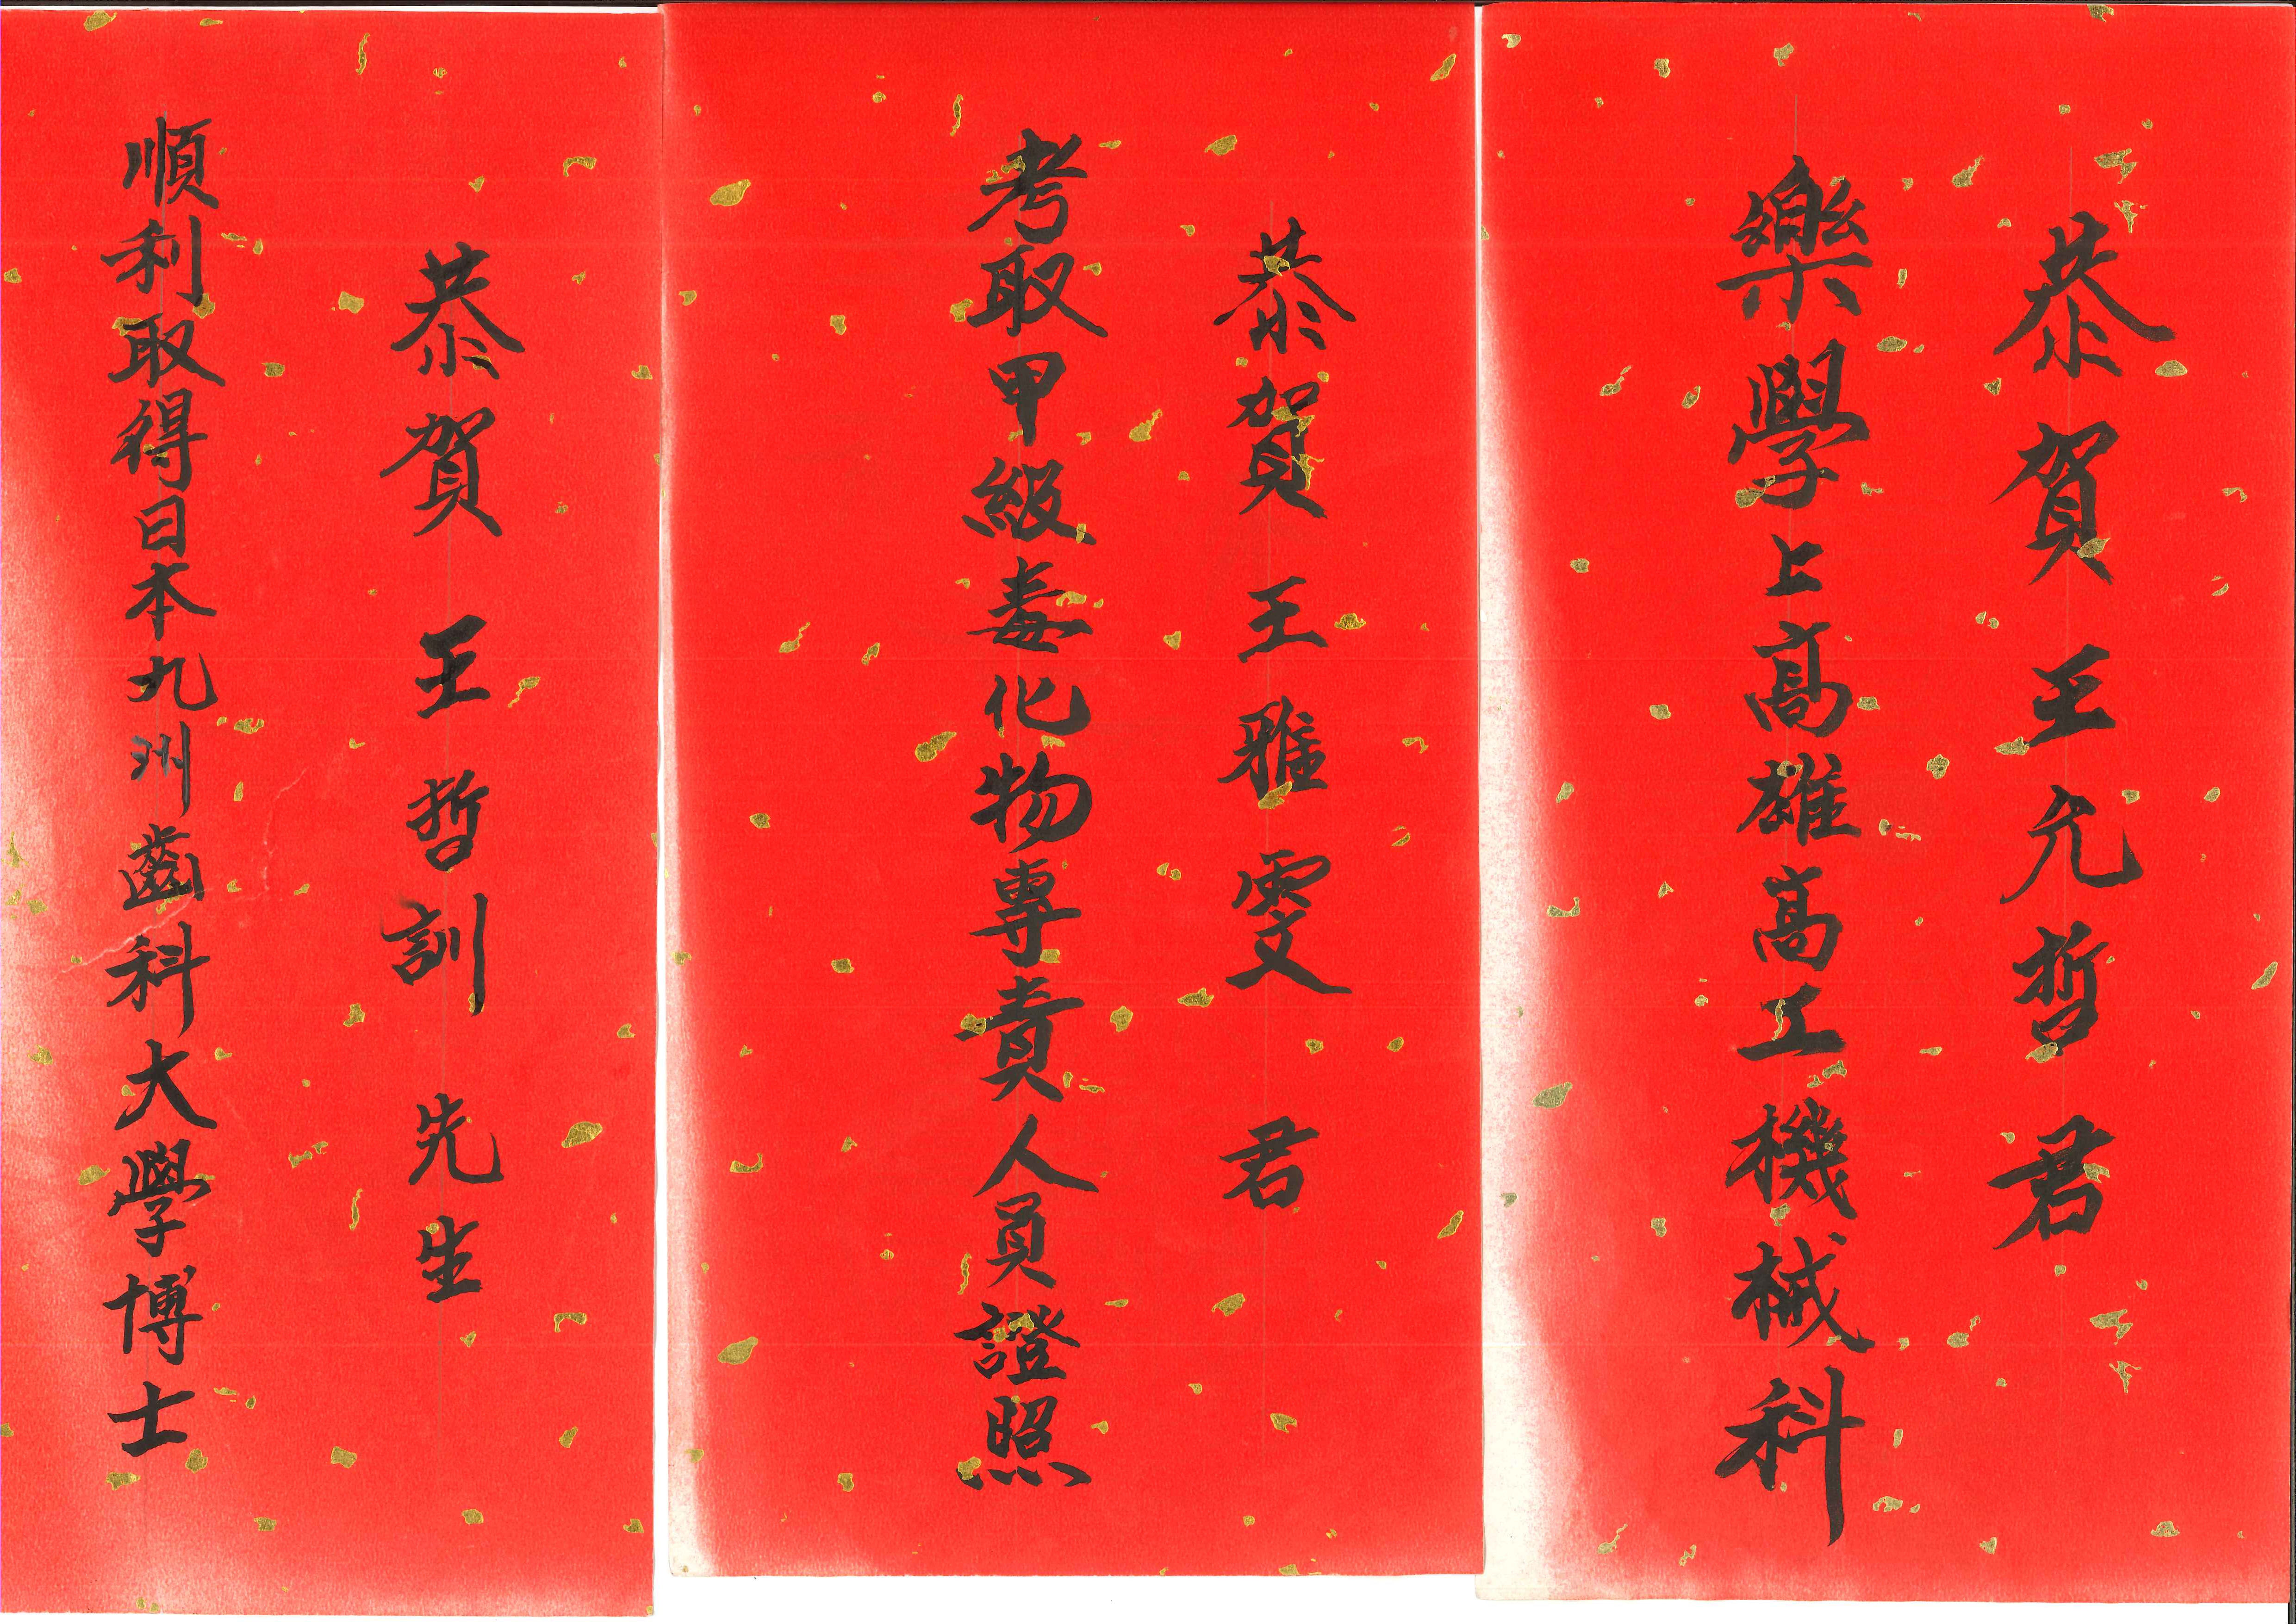 恭賀 王允哲 君
樂學上高雄高工機械科
恭賀 王雅雯 君
考取甲級毒化物專責人員證照
恭賀 王哲訓 先生
順利取得日本九州齒科大學博士